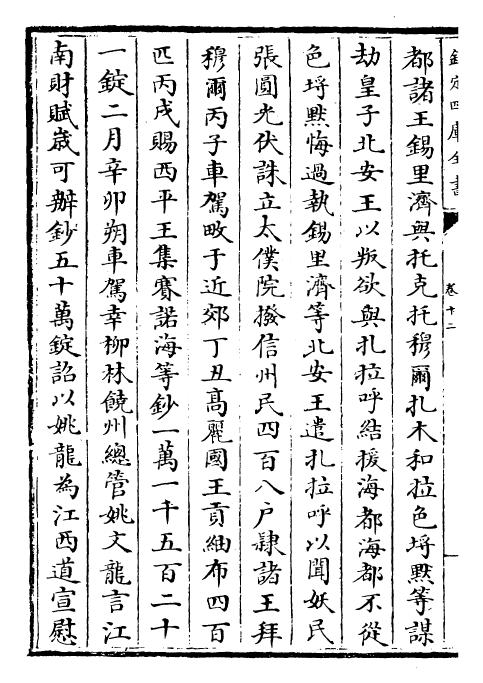 欽定四庫全書
卷十二
都諸王錫里濟與托克托穆爾扎木和拉色埒黙等謀
劫皇子北安王以叛欲與扎拉呼結援海都海都不從
色埒黙悔過執錫里濟等北安王遣扎拉呼以聞妖民
張圓光伏誅立太僕院撥信州民四百八户隷諸王拜
穆爾丙子車駕畋于近郊丁丑髙麗國王貢紬布四百
匹丙戌賜西平王集賽諾海等鈔一萬一千五百二十
一錠二月辛卯朔車駕幸柳林饒州總管姚文龍言江
南財賦歲可辦鈔五十萬錠詔以姚龍為江西道宣慰